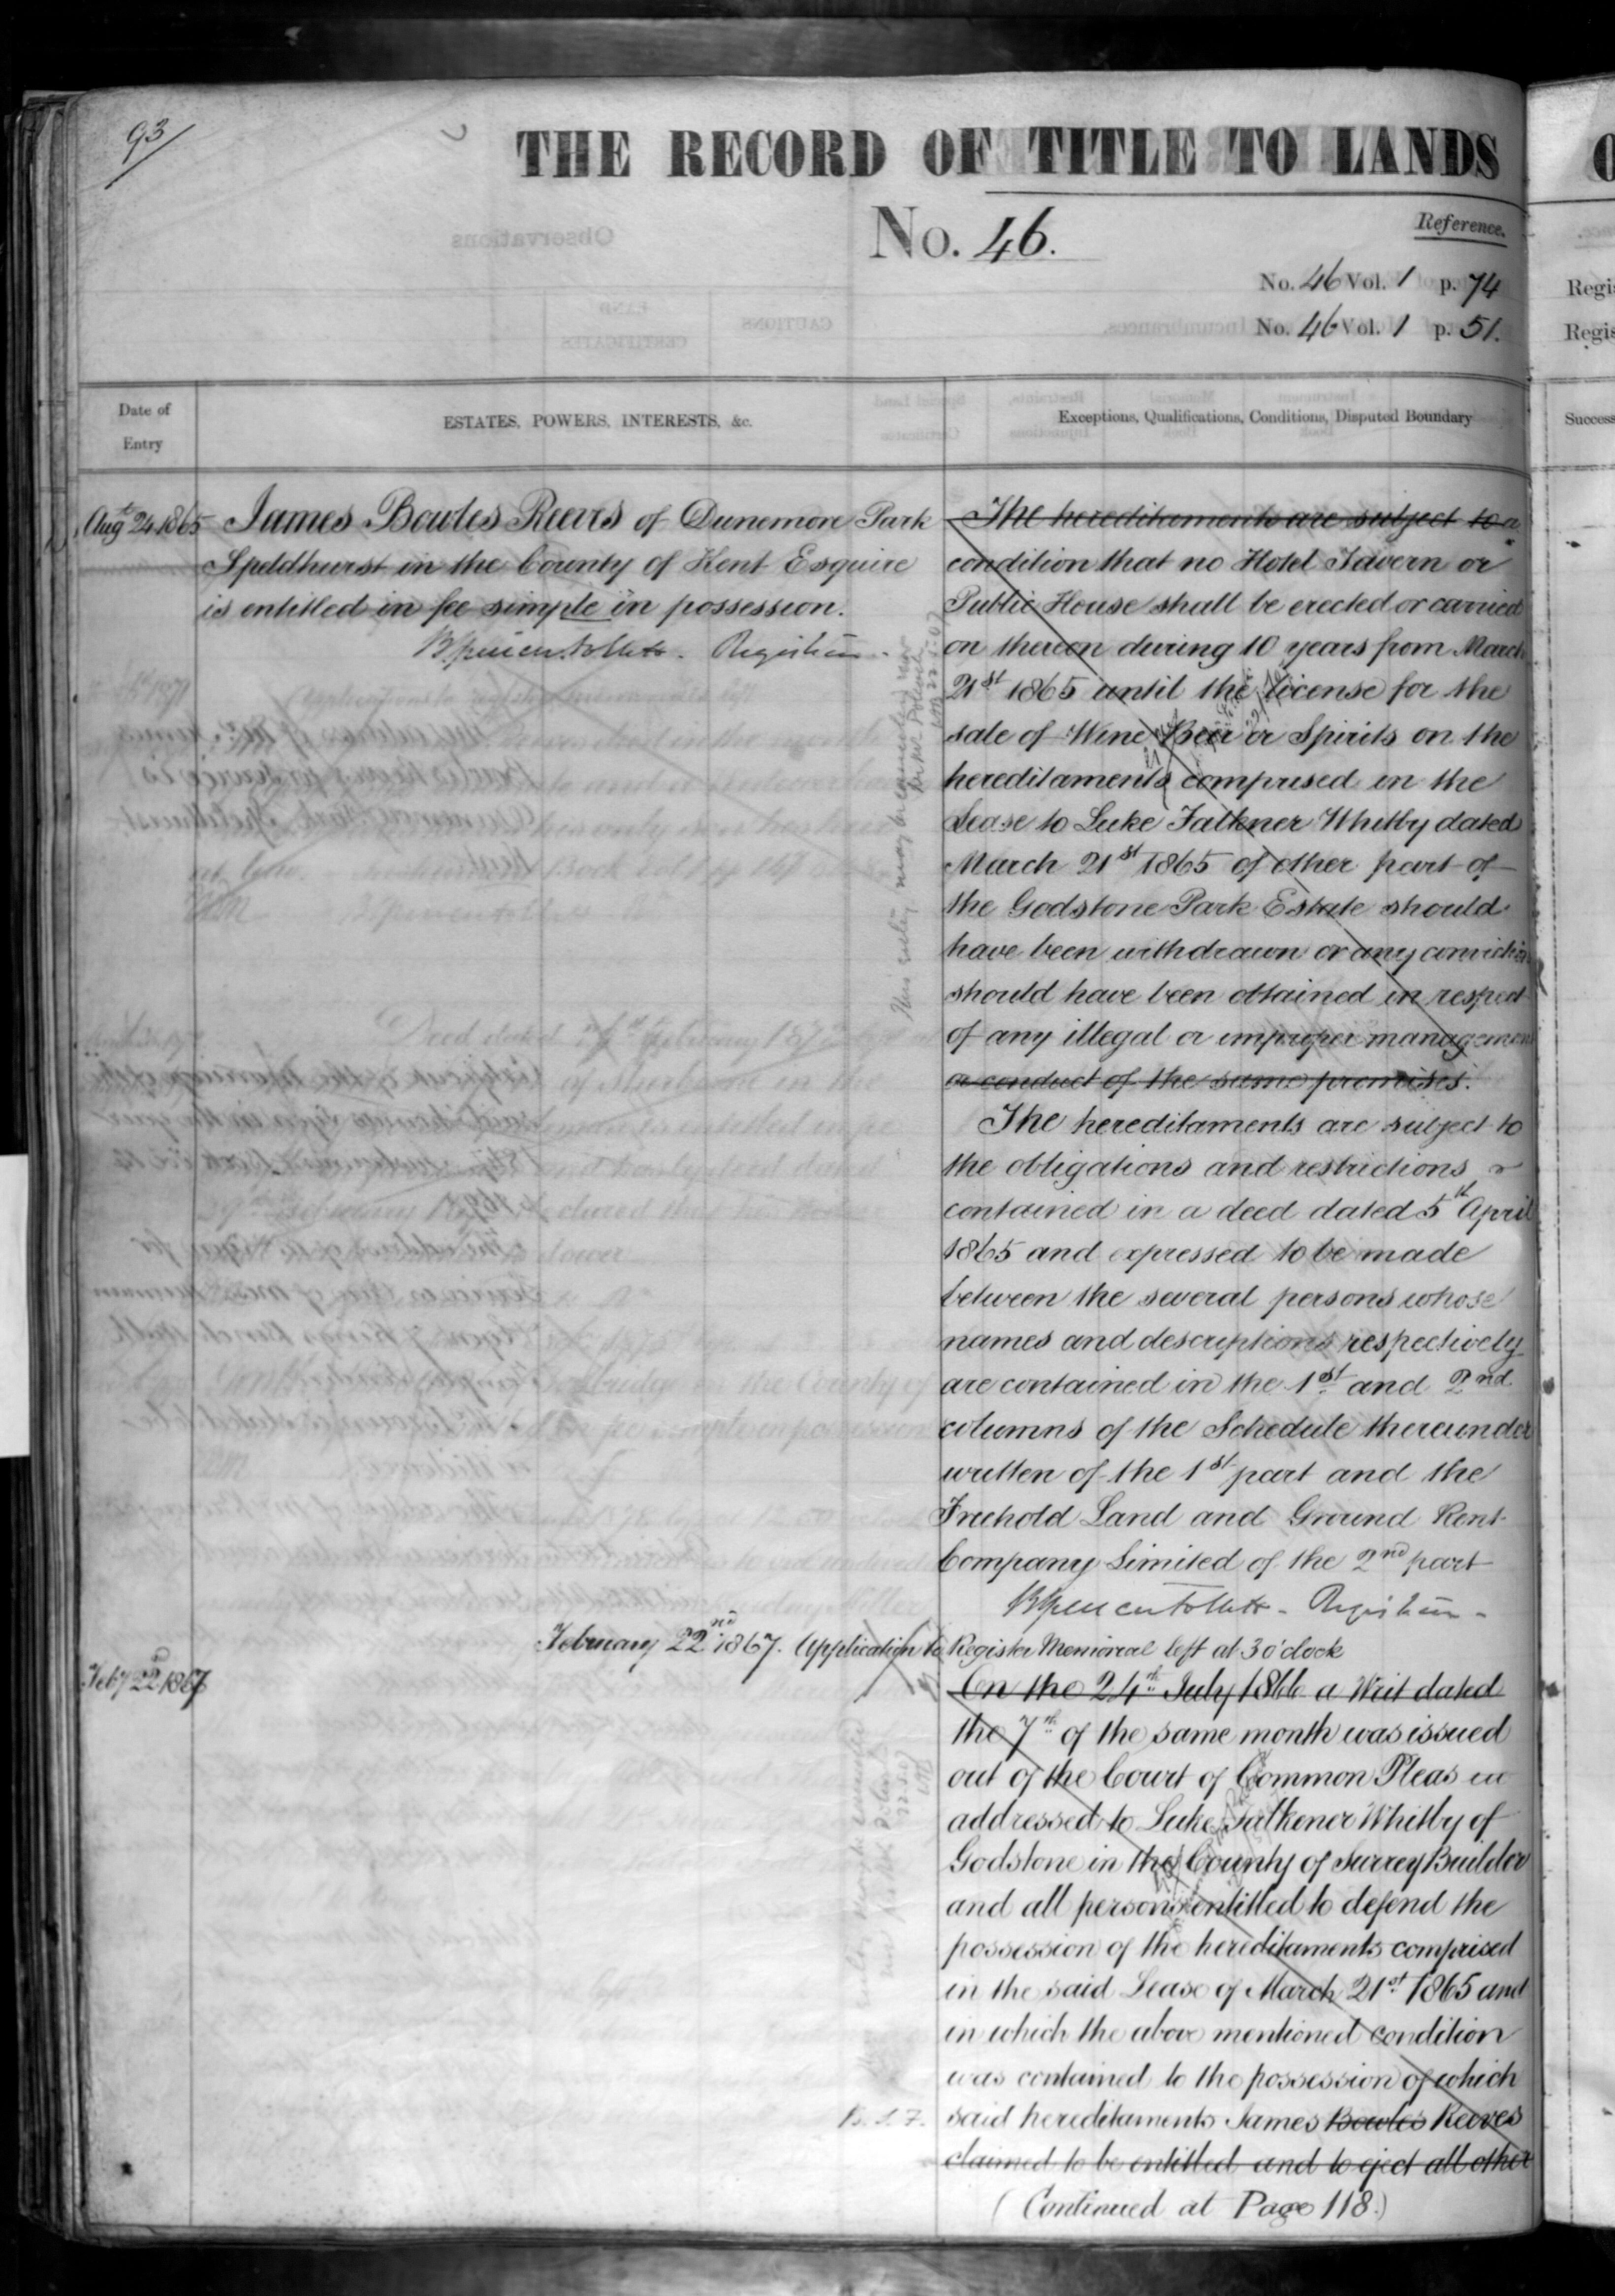 93/
THE RECORD OF TITLE TO LANDS
No. 46.
Reference.
No. 46 Vol. 1 p. 74
No. 46 Vol. 1 p. 51.
Date of
Entry
ESTATES, POWERS, INTERESTS, &c.
Exceptions, Qualifications, Conditions, Disputed Boundary
Augt 24 1865
James Bowles Reeves of Dunemore Park
Speldhurst in the County of Kent Esquire
is entitled in fee simple in possession.
Registrar.
The hereditaments are subject to a
condition that no Hotel Tavern or
Public House shall be erected or carried
on thereon during 10 years from March
21st 1865 until the license for the
sale of Wine Beer or Spirits on the
hereditaments comprised in the
Lease to Luke Falkner Whitby dated
March 21st 1865 of other part of
the Godstone Park Estate should
have been withdrawn or any conviction
should have been obtained in respect
of any illegal or improper management
or conduct of the same premises.
The hereditaments are subject to
the obligations and restrictions
contained in a deed dated 5th April
1865 and expressed to be made
between the several persons whose
names and descriptions respectively
are contained in the 1st and 2nd
columns of the Schedule thereunder
written of the 1st part and the
Freehold Land and Ground Rent
Company Limited of the 2nd part
Registrar.
February 22nd 1867. Application to Register Memorial left at 3 o'clock
Feby 22nd 1867
On the 24th July 1866 a Writ dated
the 7th of the same month was issued
out of the Court of Common Pleas
addressed to Luke Falkener Whitby of
Godstone in the County of Surrey Builder
and all persons entitled to defend the
possession of the hereditaments comprised
in the said Lease of March 21st 1865 and
in which the above mentioned condition
was contained to the possession of which
said hereditaments James Bowles Reeves
claimed to be entitled and to eject all other
(Continued at Page 118.)
O
Regis
Regis
Success